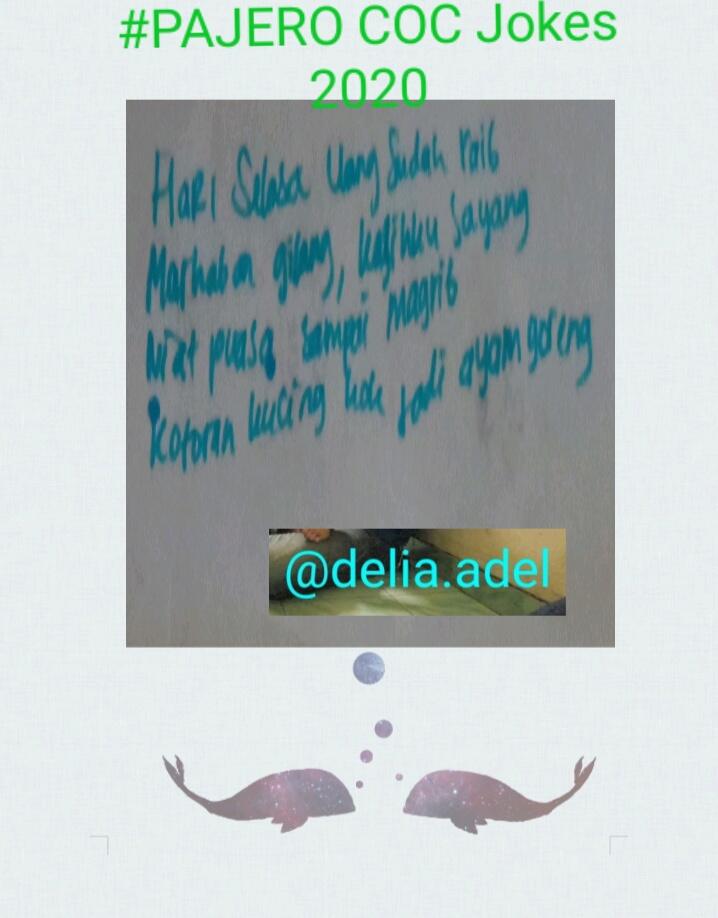 #PAJERO COC Jokes
2020
HARI Selasa Uang Sudah raib
Marhaban gilang, kasihku sayang
Niat puasa sampai magrib
Kotoran kucing kok jadi ayam goreng
@delia.adel